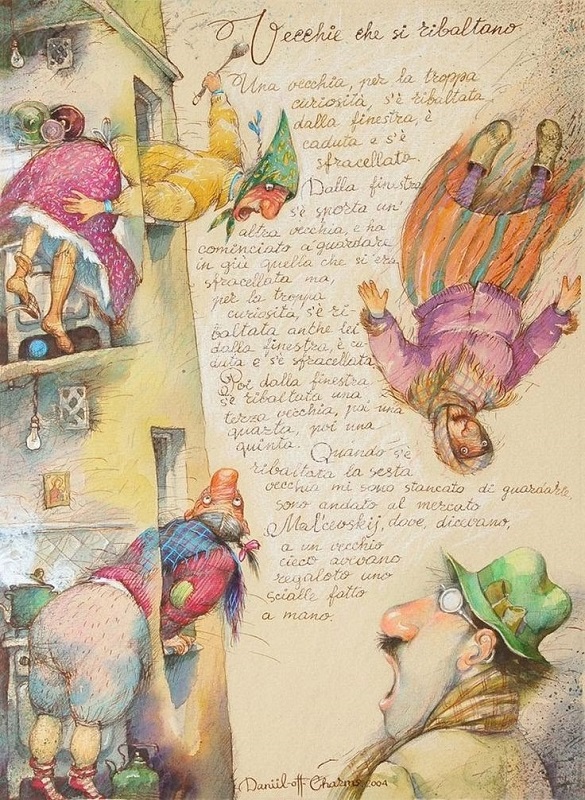 Vecchie che si ribaltano
Una vecchia, per la troppa
curiosità, s'è ribaltata
dalla finestra, è
caduta e s'è
sfracellata.
Dalla finestra
s'è sporta un'
altra vecchia, e ha
cominciato a guardare
in giù quella che si era
sfracellata ma,
per la troppa
curiosità, s'è ri-
baltata anche lei
dalla finestra, è ca
duta e s'è sfracellata.
Poi dalla finestra
s'è ribaltata una
terza vecchia, poi una
quarta, poi una
quinta.
Quando s'è
ribaltata la sesta
vecchia mi sono stancato di guardarle,
sono andato al mercato
Malcevskij, dove, dicevano,
a un vecchio
cieco avevano
regalato uno
scialle fatto
a mano.
Daniil-off-Charms 2004